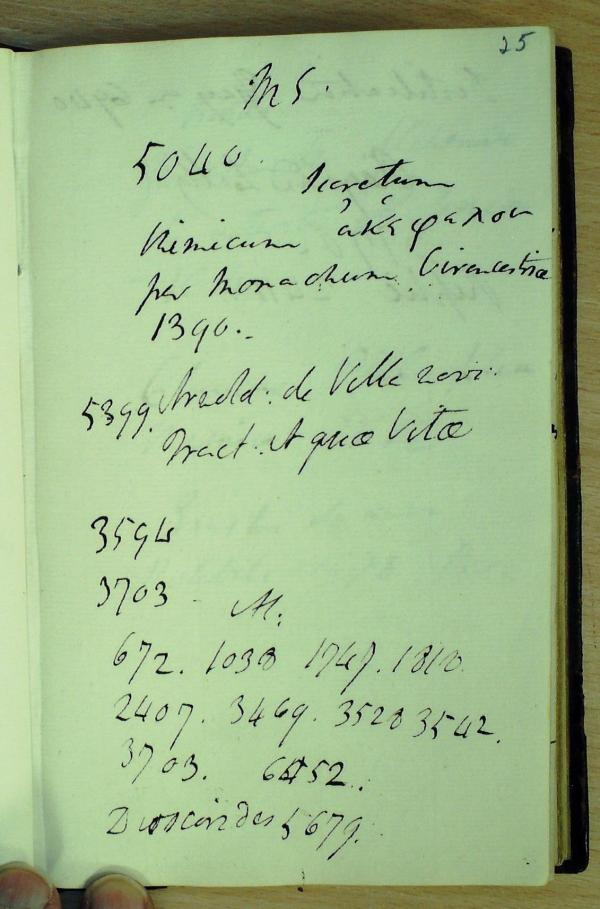 25
MS.
5040. Secretum
Kimicum ἀκέφαλον
per Monachum Cirencestriæ
1390.
5399. Arnold: de Villa novi.
Tract. Aquæ Vitæ
3594
3703
672. 1038 1747. 1818
2407. 3469. 3528 3542.
3703. 6452.
Dioscorides 5679.